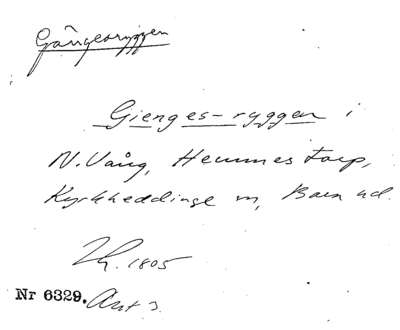 Gångesryggen
Gienges-ryggen i
N. Vång, Hemmestorp,
Kyrkheddinge sn, Bara hd.
1805
Nr 6329. Akt 3.